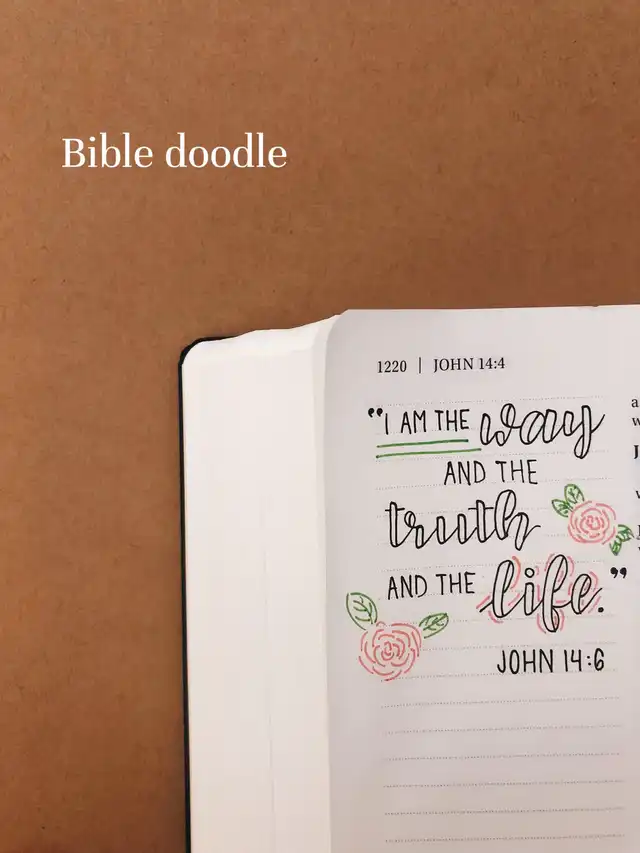 Bible doodle
1220 | JOHN 14:4
"I AM THE way
AND THE
truth
AND THE life."
JOHN 14:6